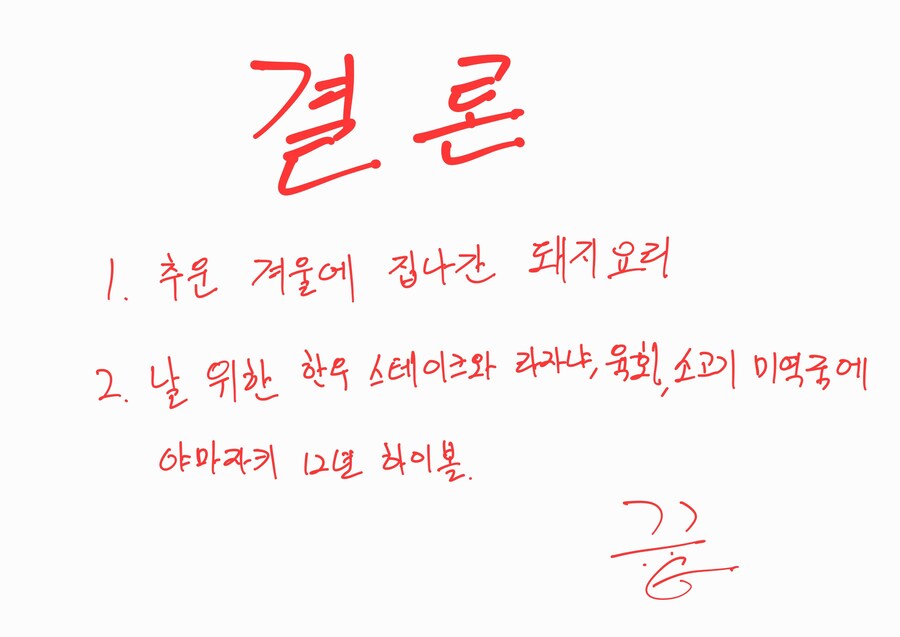 결론
1. 추운 겨울에 집나간 돼지요리
2. 날 위한 한우 스테이크와 라자냐, 육회, 소고기 미역국에
야마자키 12년 하이볼.